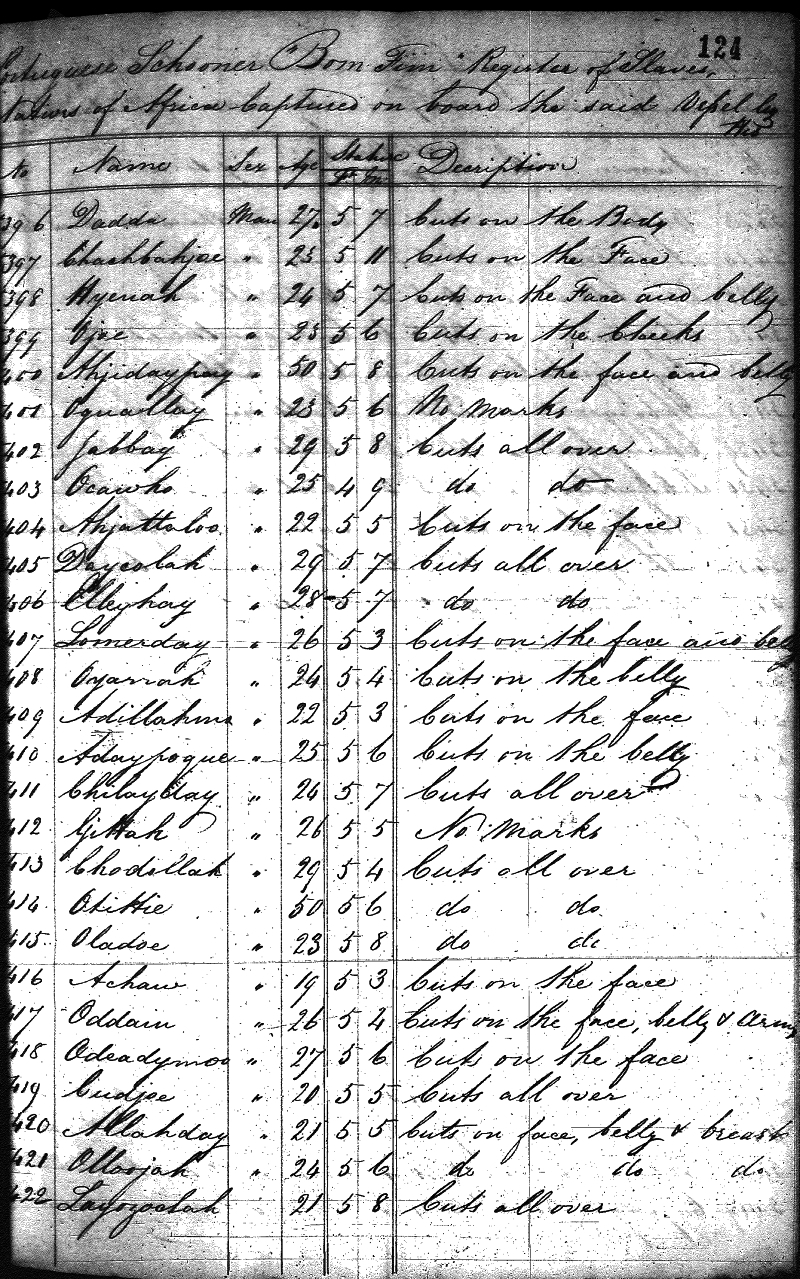 124
Portuguese Schooner "Bom Fim" Register of Slaves,
Natives of Africa Captured on board the said Vessel by
No Name Sex Age Stature Decription
Ft In
396 Dadda Man 27 5 7 Cuts on the Body
397 Chachbahjoe " 23 5 11 Cuts on the Face
398 Hyenah " 24 5 7 Cuts on the Face and belly
399 Ojoe " 23 5 6 Cuts on the Cheeks
400 Ahjidaypay " 50 5 8 Cuts on the face and belly
401 Oguallay " 23 5 6 No Marks
402 Jabbay " 29 5 8 Cuts all over
403 Ocawho " 25 4 9 do do
404 Ahjattaloo " 22 5 5 Cuts on the face
405 Daycolah " 29 5 7 Cuts all over
406 Elleyhay " 28 5 7 do do
407 Lomerday " 26 5 3 Cuts on the face and belly
408 Oyarrah " 24 5 4 Cuts on the belly
409 Adillahma " 22 5 3 Cuts on the face
410 Adaypogue " 25 5 6 Cuts on the belly
411 Chilayelay " 24 5 7 Cuts all over
412 Gittah " 26 5 5 No Marks
413 Chodillah " 29 5 4 Cuts all over
414 Otittie " 50 5 6 do do
415 Oladoe " 23 5 8 do do
416 Achaw " 19 5 3 Cuts on the face
417 Oddain " 26 5 4 Cuts on the face, belly & Arms
418 Odeadymoo " 27 5 6 Cuts on the face
419 Cudjoe " 20 5 5 Cuts all over
420 Allahday " 21 5 5 Cuts on face, belly & breast
421 Ollaojah " 24 5 6 do do do
422 Layozoclah 21 5 8 Cuts all over